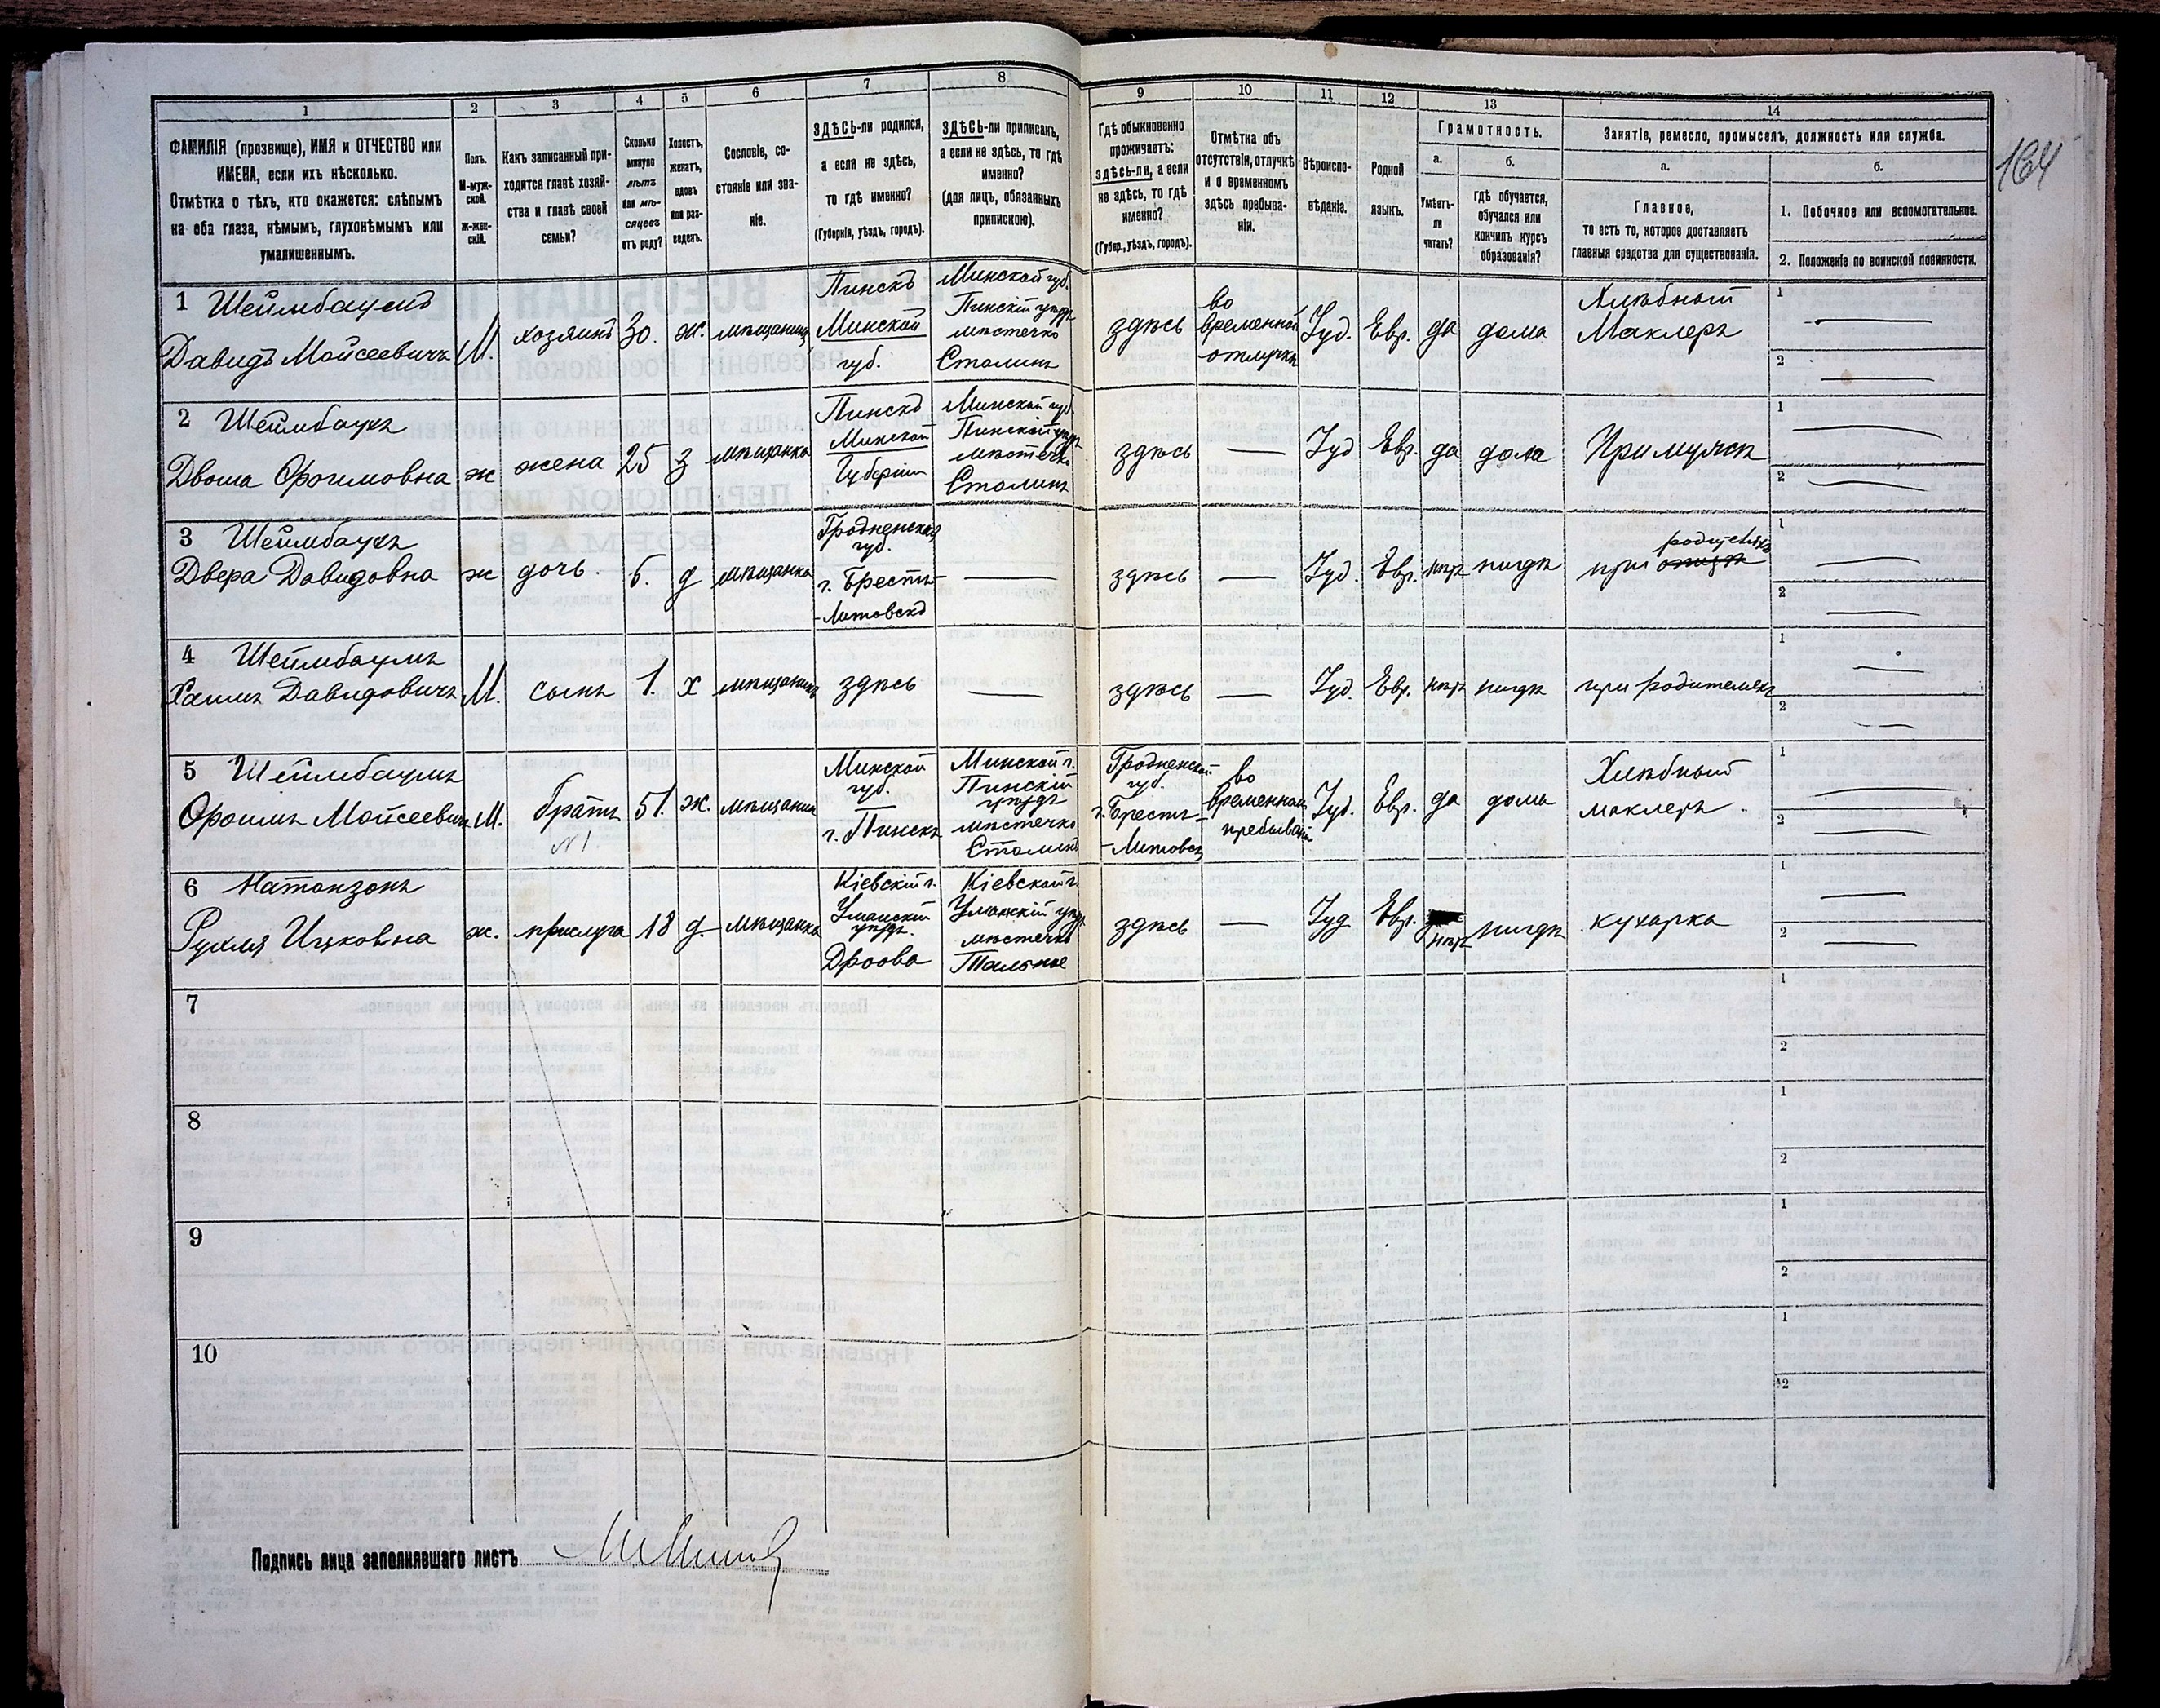 164
1 2 3 4 5 6 7 8 9 10 11 12 13 14
ФАМИЛІЯ (прозвище), ИМЯ и ОТЧЕСТВО или
ИМЕНА, если ихъ нѣсколько.
Отмѣтка о тѣхъ, кто окажется: слѣпымъ
на оба глаза, нѣмымъ, глухонѣмымъ или
умалишеннымъ.
Полъ.
М-муж-
ской.
Ж-жен-
скій.
Какъ записанный при-
ходится главѣ хозяй-
ства и главѣ своей
семьи?
Сколько
минуло
лѣтъ
или мѣ-
сяцевъ
отъ роду?
Холостъ,
женатъ,
вдовъ
или раз-
веденъ.
Сословіе, со-
стояніе или зва-
ніе.
ЗДѢСЬ-ли родился,
а если не здѣсь,
то гдѣ именно?
(Губернія, уѣздъ, городъ).
ЗДѢСЬ-ли приписанъ,
а если не здѣсь, то гдѣ
именно?
(для лицъ, обязанныхъ
припискою).
Гдѣ обыкновенно
проживаетъ:
здѣсь-ли, а если
не здѣсь, то гдѣ
именно?
(Губер., уѣздъ, городъ).
Отмѣтка объ
отсутствіи, отлучкѣ
и о временномъ
здѣсь пребыва-
ніи.
Вѣроиспо-
вѣданіе.
Родной
языкъ.
Грамотность.
а.
Умѣетъ-
ли
читать?
б.
гдѣ обучается,
обучался или
кончилъ курсъ
образованія?
Занятіе, ремесло, промыселъ, должность или служба.
а.
Главное,
то есть то, которое доставляетъ
главныя средства для существованія.
б.
1. Побочное или вспомогательное.
2. Положеніе по воинской повинности.
1 Шеймбаумъ
Давидъ Мойсеевичъ
М.
хозяинъ
30.
ж.
мѣщанинъ
Пинскъ
Минской
губ.
Минской губ.
Пинскій уѣздъ
мѣстечко
Столинъ
здѣсь
во
временной
отлучкѣ
Іуд.
Евр.
да
дома
Хлѣбный
Маклеръ
1
2
2 Шеймбаумъ
Двоша Фроимовна
ж
жена
25
з
мѣщанка
Пинскъ
Минской
Губерніи
Минской губ.
Пинскій уѣздъ
мѣстечко
Столинъ
здѣсь
Іуд
Евр.
да
дома
При мужѣ
1
2
3 Шеймбаумъ
Двера Давидовна
ж
дочь.
6.
д
мѣщанка
Гродненская
губ.
г. Брестъ-
-Литовскъ
здѣсь
Іуд.
Евр.
нѣтъ
нигдѣ
родителяхъ
при
1
2
4 Шеймбаумъ
Хаимъ Давидовичъ
М.
сынъ
1.
х
мѣщанинъ
здѣсь
здѣсь
Іуд.
Евр.
нѣтъ
нигдѣ
при родителяхъ
1
2
5 Шеймбаумъ
Фроимъ Мойсеевичъ
М.
братъ
N 1
51.
ж.
мѣщанинъ
Минской
губ.
г. Пинскъ
Минской г.
Пинскій
уѣздъ
мѣстечко
Столинъ
Гродненской
губ.
г. Брестъ-
-Литовскъ
во
временномъ
пребываніи
Іуд.
Евр.
да
дома
Хлѣбный
маклеръ.
1
2
6 Натанзонъ
Рухля Ицковна
ж.
прислуга
18
д.
мѣщанка
Кіевскій г.
Уманскій
уѣздъ.
Кіевской г.
Уманскій уѣздъ
мѣстечко
Тальное
здѣсь
Іуд
Евр.
нѣтъ
нигдѣ
кухарка
1
2
7
1
2
8
1
2
9
1
2
10
1
2
Подпись лица заполнявшаго листъ